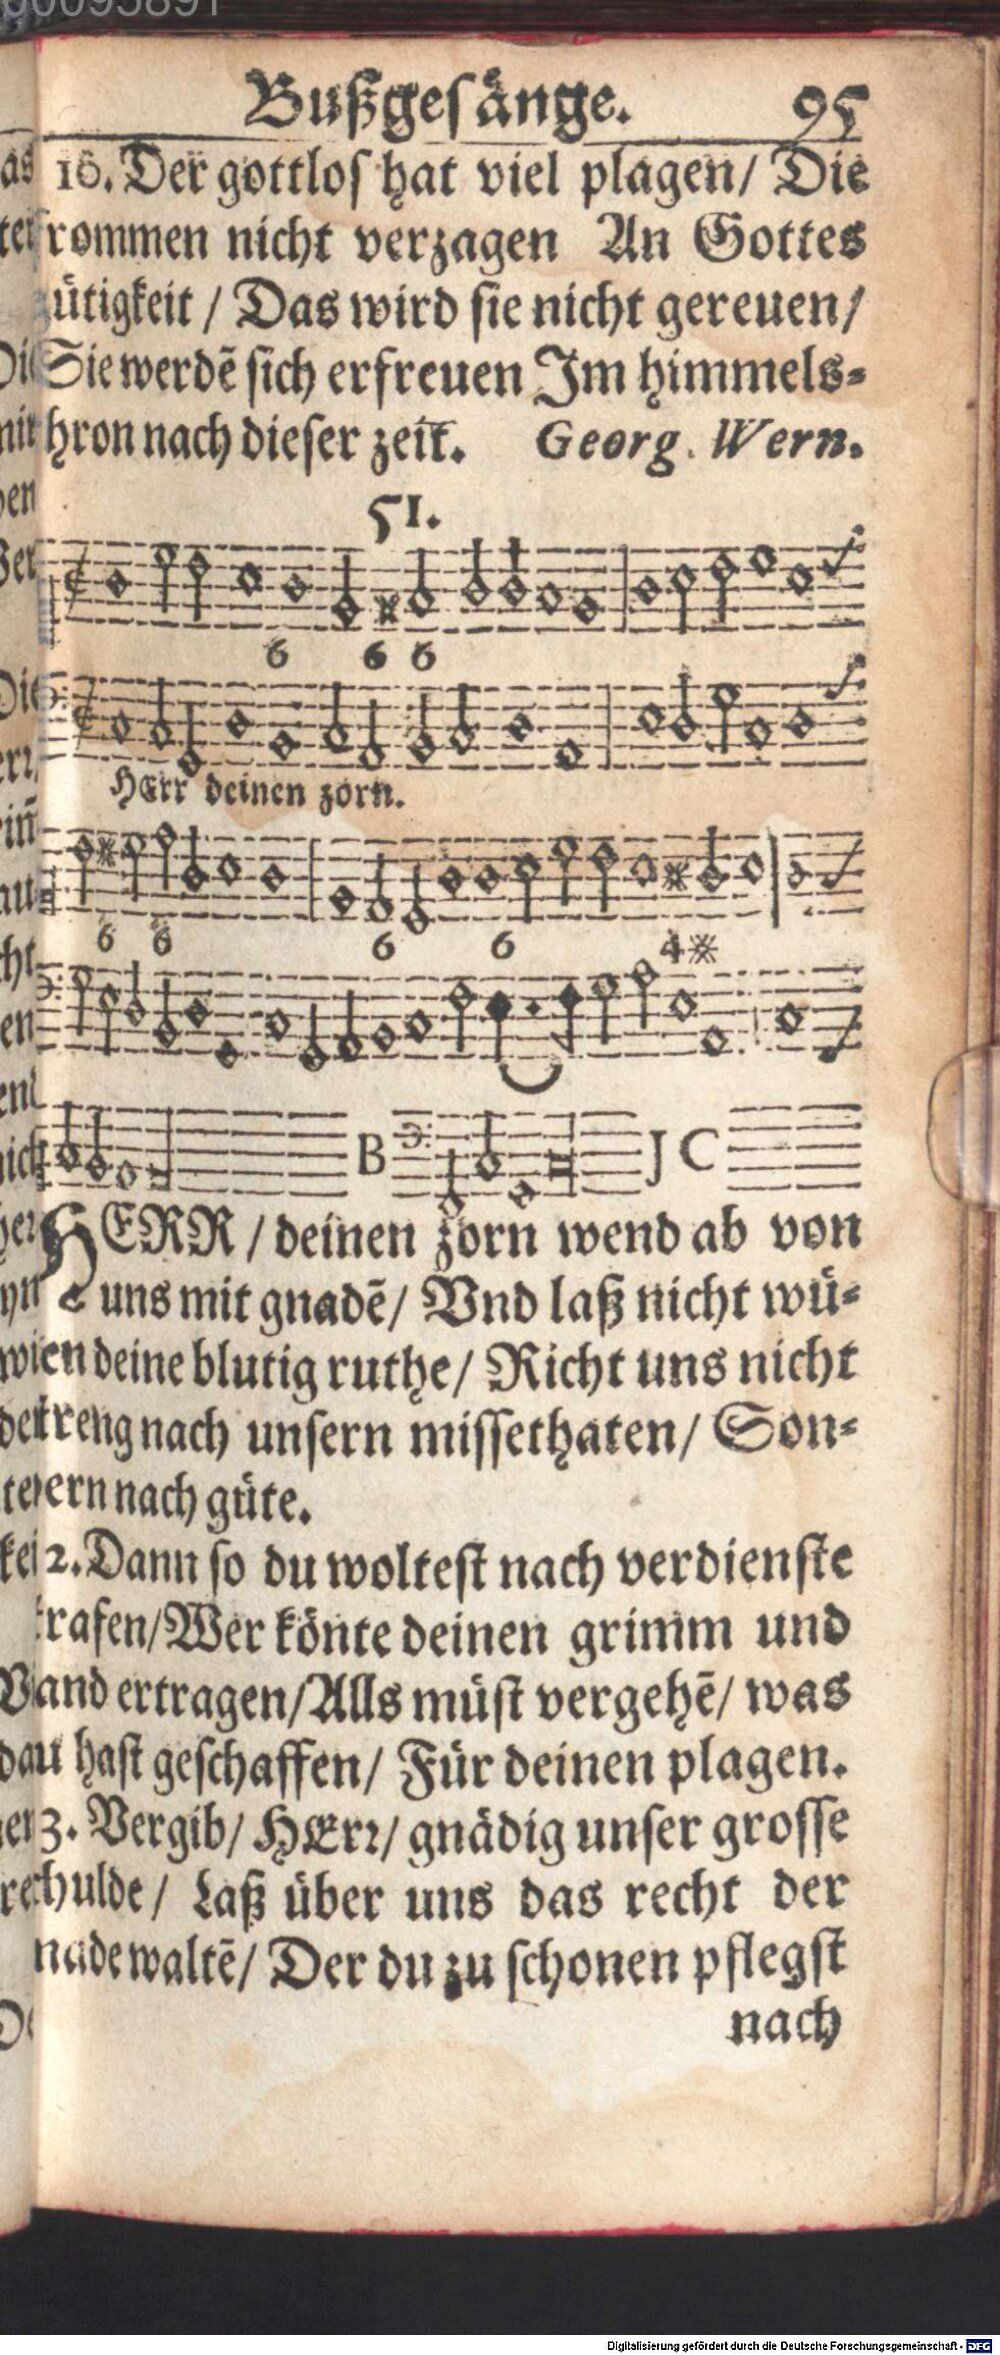 Bußgesänge. 95
16. Der gottlos hat viel plagen/ Die
frommen nicht verzagen An Gottes
gütigkeit / Das wird sie nicht gereuen/
Sie werdē sich erfreuen Im himmels-
hron nach dieser zeit. Georg. Wern.
51.
6 6 6
HErr deinen zorn.
6 6 6 6 4
B J C
HERR / deinen zorn wend ab von
uns mit gnadē/ Vnd laß nicht wü-
en deine blutig ruthe/ Richt uns nicht
treng nach unsern missethaten/ Son-
ern nach güte.
2. Dann so du woltest nach verdienste
rafen/ Wer könte deinen grimm und
and ertragen/ Alls müst vergehē/ was
u hast geschaffen/ Für deinen plagen.
3. Vergib/ HErr/ gnädig unser grosse
hulde/ Laß über uns das recht der
nade waltē/ Der du zu schonen pflegst
nach
Digitalisierung gefördert durch die Deutsche Forschungsgemeinschaft - DFG